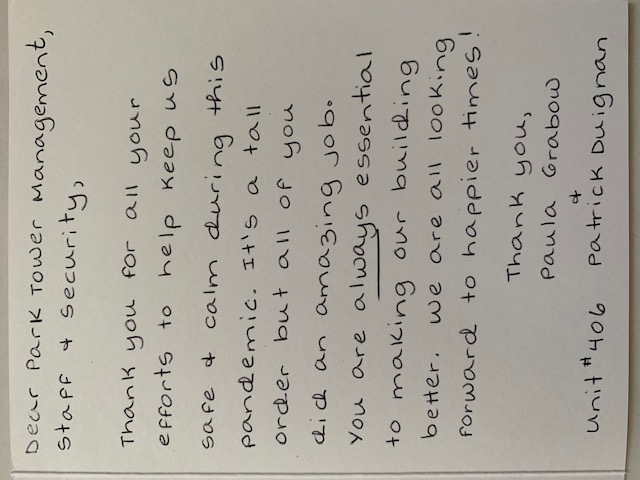 Dear Park Tower Management,
Staff & Security,
Thank you for all your
efforts to help keep us
safe & calm during this
pandemic. It's a tall
order but all of you
did an amazing job.
You are always essential
to making our building
better. We are all looking
forward to happier times!
Thank you,
Paula Grabow
&
Unit #406 Patrick Duignan